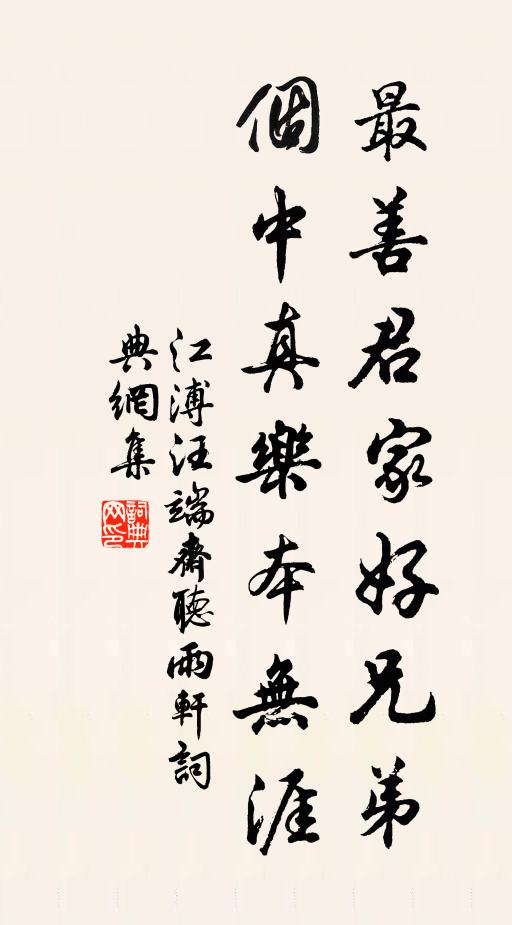 最善君家好兄弟
個中真樂本無涯
江溥汪端齋聽雨軒詞
典網集
詞典網印